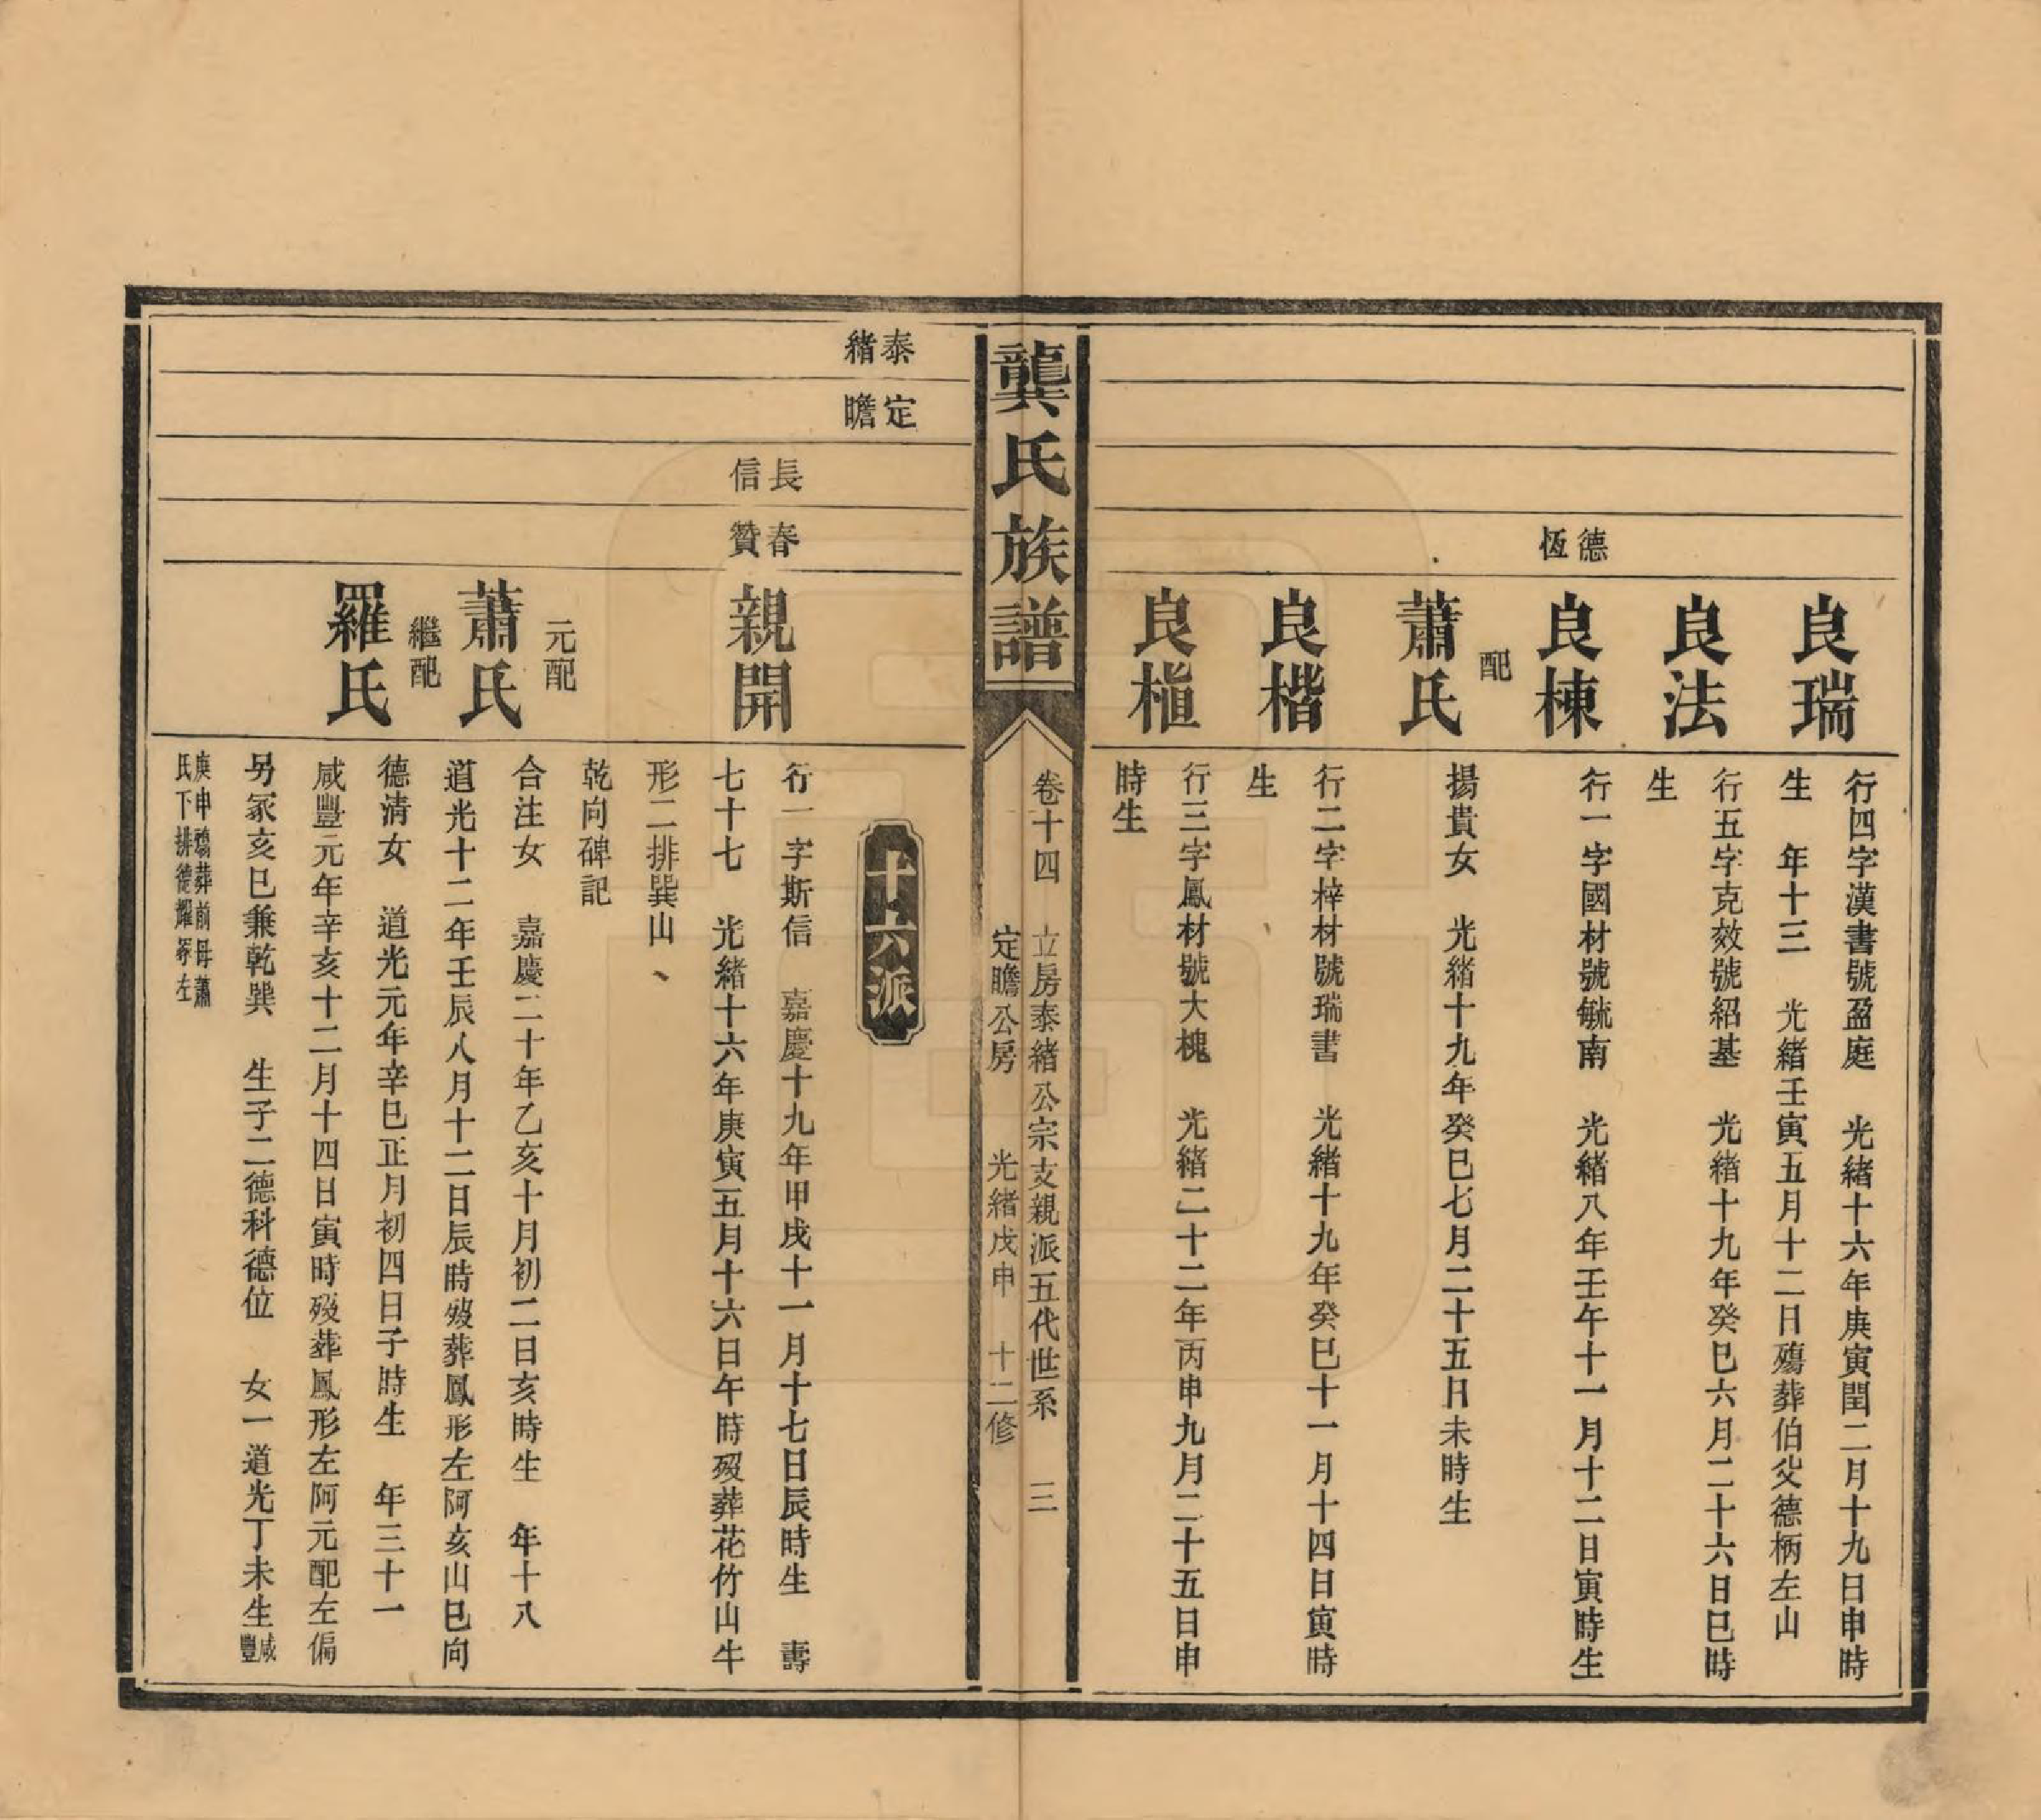 德恆
良瑞
行四字漢書號盈庭　光緒十六年庚寅閏二月十九日申時
生　年十三　光緒壬寅五月十二日殤葬伯父德柄左山
良法
行五字克效號紹基　光緒十九年癸巳六月二十六日巳時
生
良棟
行一字國材號毓南　光緒八年壬午十一月十二日寅時生
配
蕭氏
揚貴女　光緒十九年癸巳七月二十五日未時生
良楷
行二字梓材號瑞書　光緒十九年癸巳十一月十四日寅時
生
良楦
行三字鳳材號大槐　光緒二十二年丙申九月二十五日申
時生
龔氏族譜
卷十四　立房泰緒公宗支親派五代世系　三
定瞻公房　光緒戊申　十二修
泰緒
定瞻
十六派
長信
春贊
親開
行一字斯信　嘉慶十九年甲戌十一月十七日辰時生　壽
七十七　光緒十六年庚寅五月十六日午時歿葬花竹山牛
形二排巽山、
乾向碑記
元配
蕭氏
合注女　嘉慶二十年乙亥十月初二日亥時生　年十八
道光十二年壬辰八月十二日辰時歿葬鳳形左阿亥山巳向
繼配
羅氏
德清女　道光元年辛巳正月初四日子時生　年三十一
咸豐元年辛亥十二月十四日寅時歿葬鳳形左阿元配左偏
另冢亥巳兼乾巽　生子二德科德位　女一道光丁未生咸豐
庚申殤葬前母蕭
氏下排德耀冢左